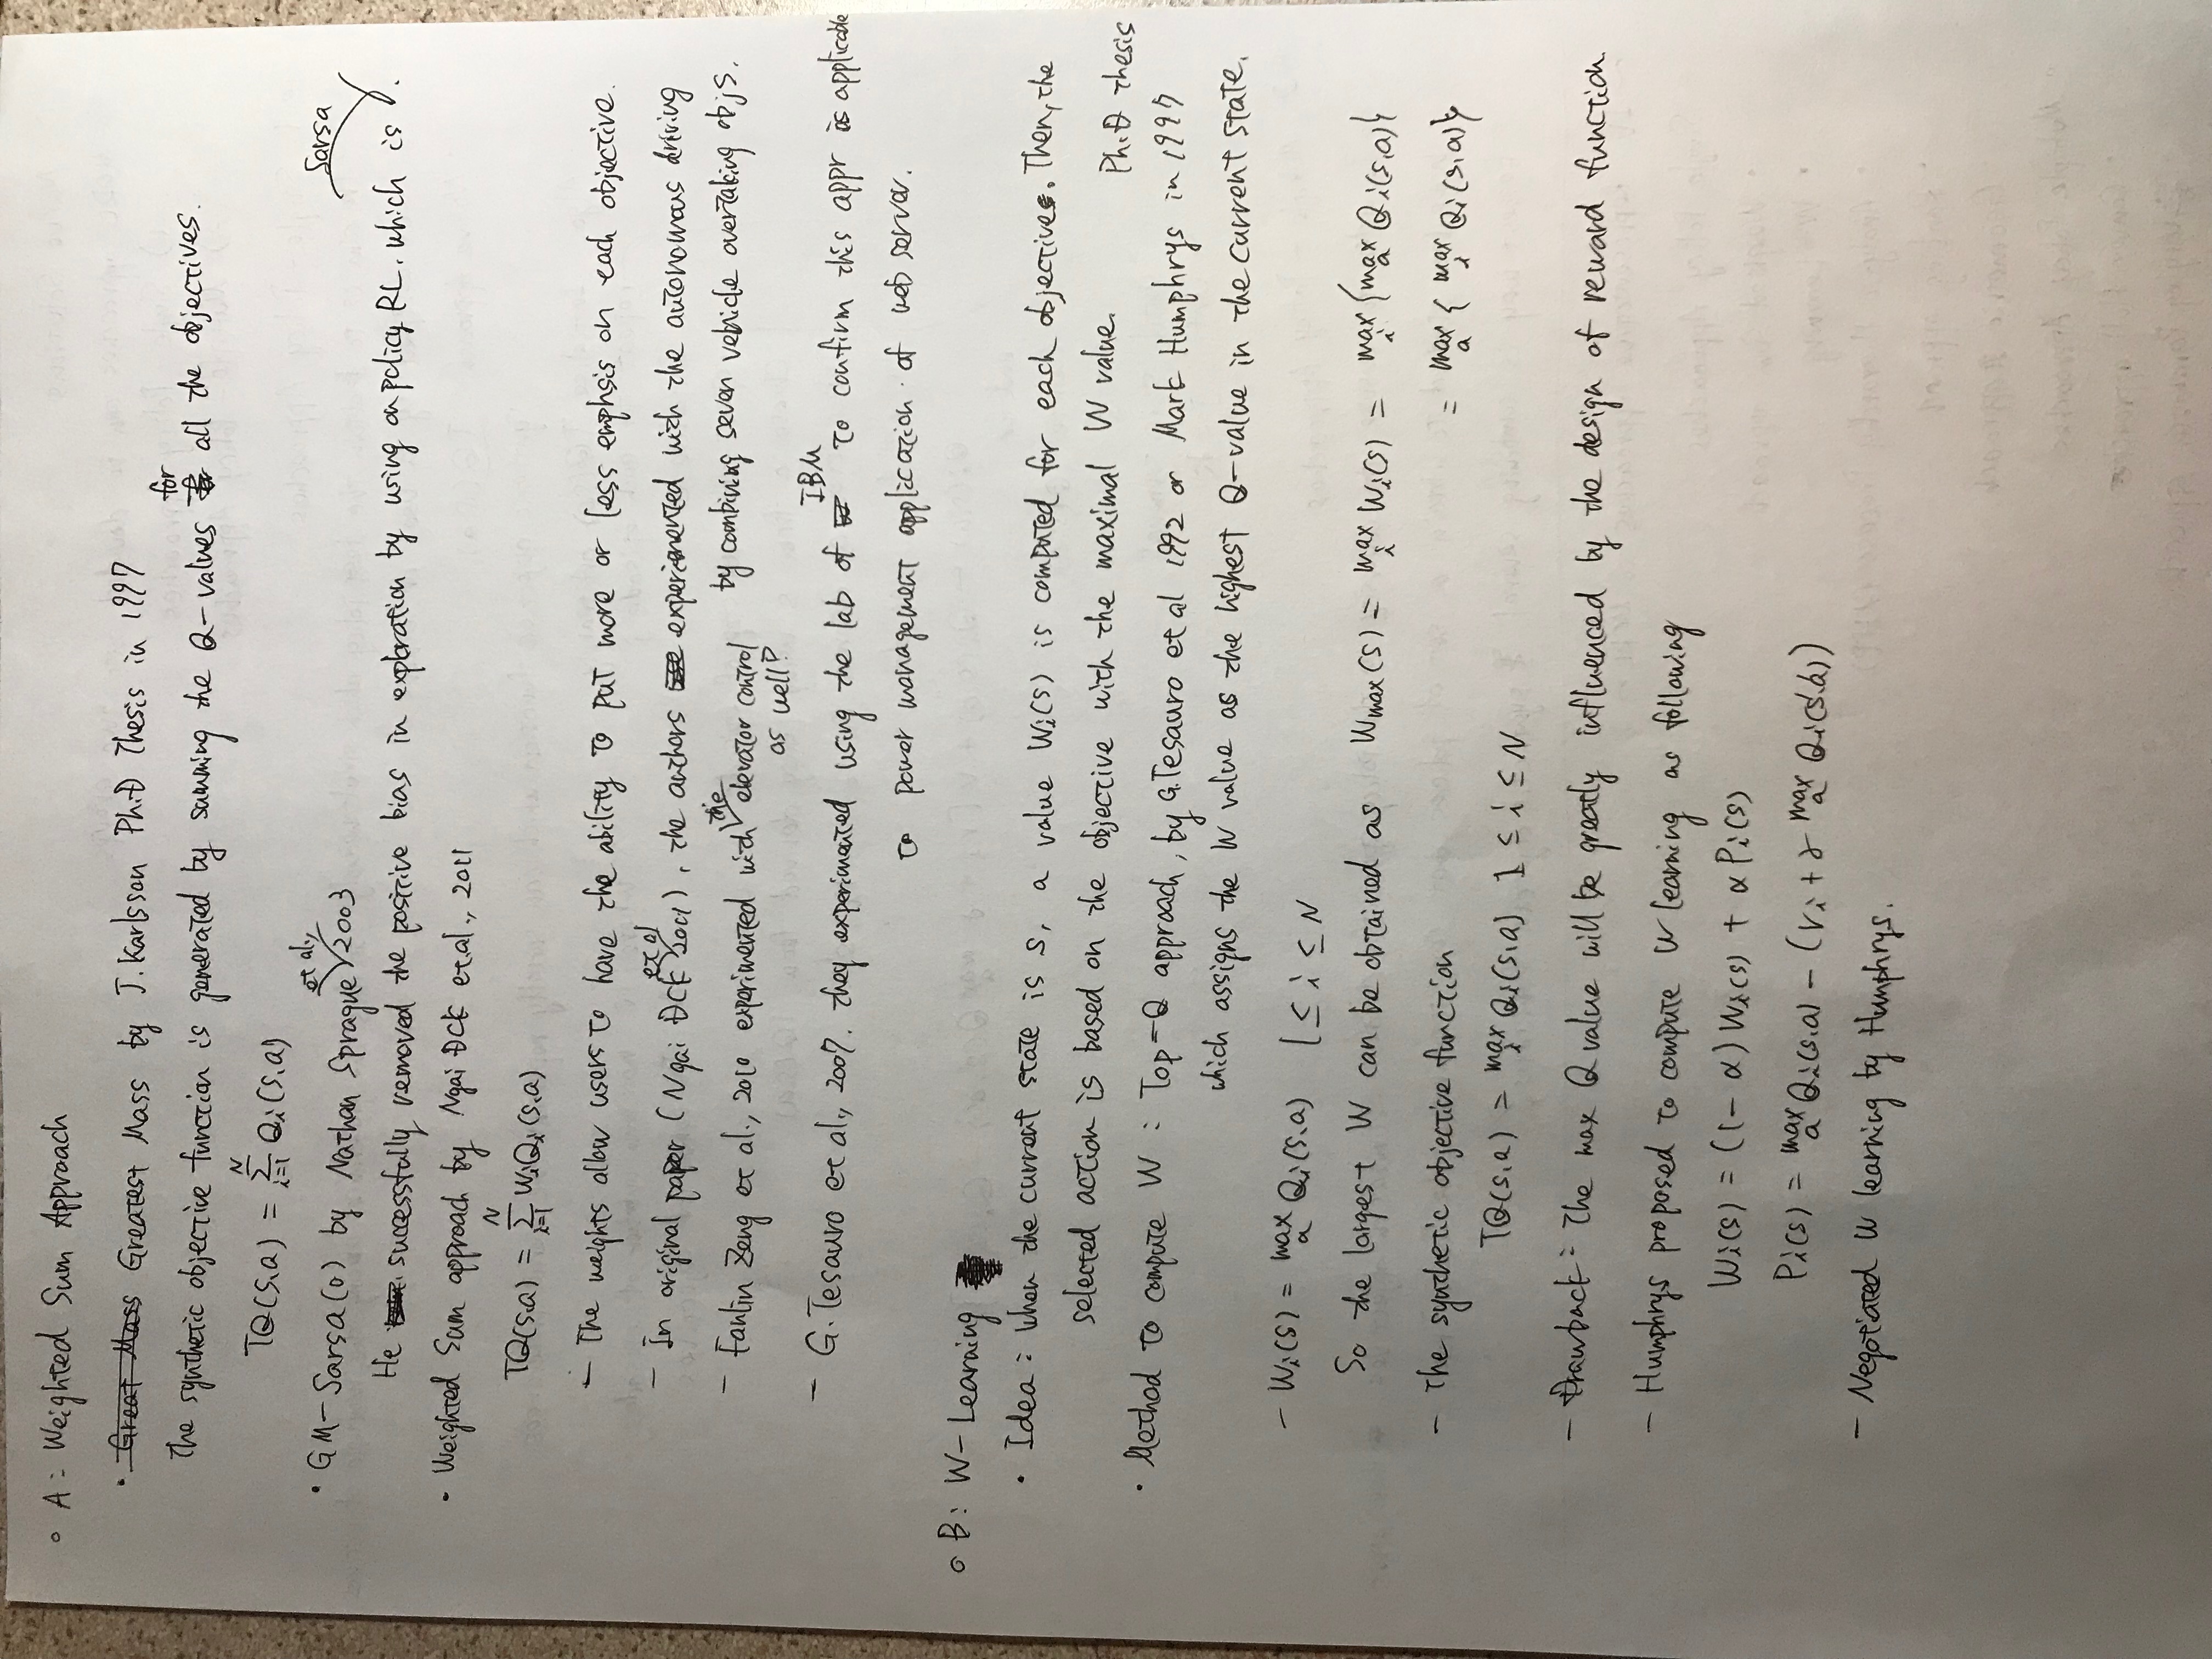 ○ A: Weighted Sum Approach
· Great Mass Greatest Mass by J. Karlsson Ph.D Thesis in 1997
The synthetic objective function is generated by summing the Q-values for all the objectives.
TQ(s,a) = Σ_{i=1}^{N} Qi(s,a)
· GM-Sarsa(0) by Nathan Sprague et al., 2003
He successfully removed the positive bias in exploration by using on policy RL, which is Sarsa.
· Weighted Sum approach by Ngai DCK et.al., 2011
TQ(s,a) = Σ_{i=1}^{N} WiQi(s,a)
– The weights allow users to have the ability to put more or less emphsis on each objective.
– In original paper (Ngai DCK et al 2011), the authors experimented with the autonomous driving
by combining seven vehicle overtaking objs.
– Fanlin Zeng et al., 2010 experimented with the elevator control
as well?
– G. Tesauro et al., 2007. they experimented using the lab of IBM to confirm this appr is applicable
to power management application of web server.
○ B: W-Learning
· Idea: When the current state is s, a value Wi(s) is computed for each objectives. Then, the
selected action is based on the objective with the maximal W value.
· Method to compute W: Top-Q approach, by G.Tesauro et al 1992 or Mark Humphrys in 1997 Ph.D thesis
which assigns the W value as the highest Q-value in the current state.
– Wi(s) = max_a Qi(s,a) 1 ≤ i ≤ N
So the largest W can be obtained as Wmax(s) = max_i Wi(s) = max_i {max_a Qi(s,a)}
= max_a { max_i Qi(s,a)}
– The synthetic objective function
TQ(s,a) = max_i Qi(s,a) 1 ≤ i ≤ N
– Drawback: The max Q value will be greatly influenced by the design of reward function.
– Humphrys proposed to compute W learning as following
Wi(s) = (1-α)Wi(s) + αPi(s)
Pi(s) = max_a Qi(s,a) - (ri + γ max_a Qi(s',a'))
– Negotiated W learning by Humphrys.